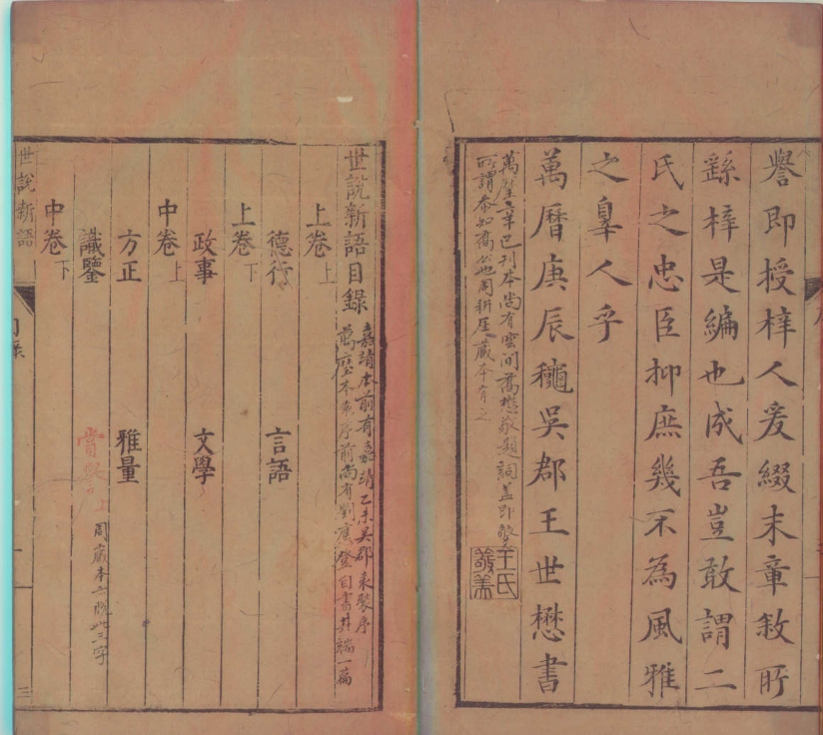 譽即授梓人爰綴末章敘所
繇梓是編也成吾豈敢謂二
氏之忠臣抑庶幾不為風雅
之辠人乎
萬曆庚辰穐吳郡王世懋書
王氏
敬美
萬曆辛巳刊本尚有雲間喬懋敬題詞蓋即
所謂本知喬公也周耕厓藏本有之
世說新語目錄
嘉靖本前有嘉靖乙未吳郡袁褧序
萬曆本序前尚有劉應登自書其端一篇
上卷上
德行
言語
上卷下
政事
文學
中卷上
方正
雅量
識鑒
賞譽上
周藏本亦脫此三字
中卷下
世說新語
目錄
一
三